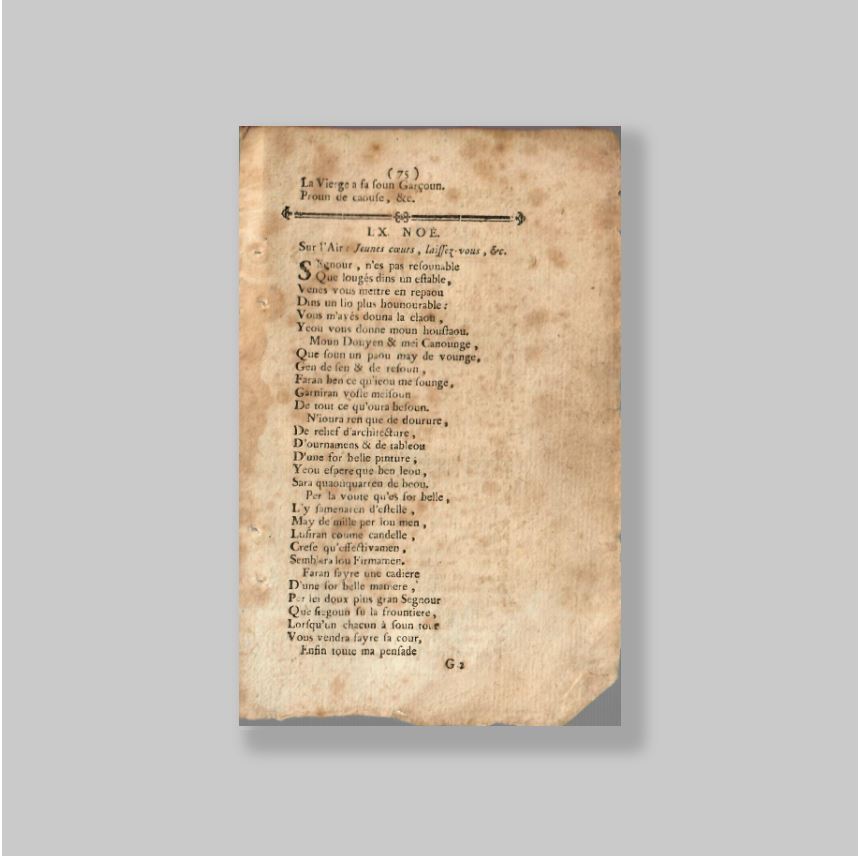 ( 75 )
La Vierge a fa ſoun Garçoun.
Proun de caouſe, &c.
LX. NOÉ.
Sur l'Air : Jeunes cœurs, laiſſez-vous, &c.
Segnour, n'es pas reſounable
Que lougés dins un eſtable,
Venes vous mettre en repaou
Dins un lio plus hounourable :
Vous m'avés douna la claou,
Yeou vous donne moun houſtaou.
Moun Douyen & mei Canounge,
Que ſoun un paou may de vounge,
Gen de ſen & de reſoun,
Faran ben ce qu'ieou me ſounge,
Garniran voſte meiſoun
De tout ce qu'oura beſoun.
N'ioura ren que de dourure,
De relief d'architecture,
D'ournamens & de tableou
D'une for belle pinture ;
Yeou eſpere que ben leou,
Sara quaouquarren de beou.
Per la voute qu'es for belle,
L'y ſamenaren d'eſtelle,
May de mille per lou men,
Luſiran coume candelle,
Creſe qu'effectivamen,
Semblara lou Firmamen.
Faran fayre une cadiere
D'une for belle maniere,
Per lei doux plus gran Segnour
Que ſiegoun ſu la frountiere,
Lorſqu'un chacun à ſoun tour
Vous vendra fayre ſa cour,
Enfin toute ma penſade
G 2